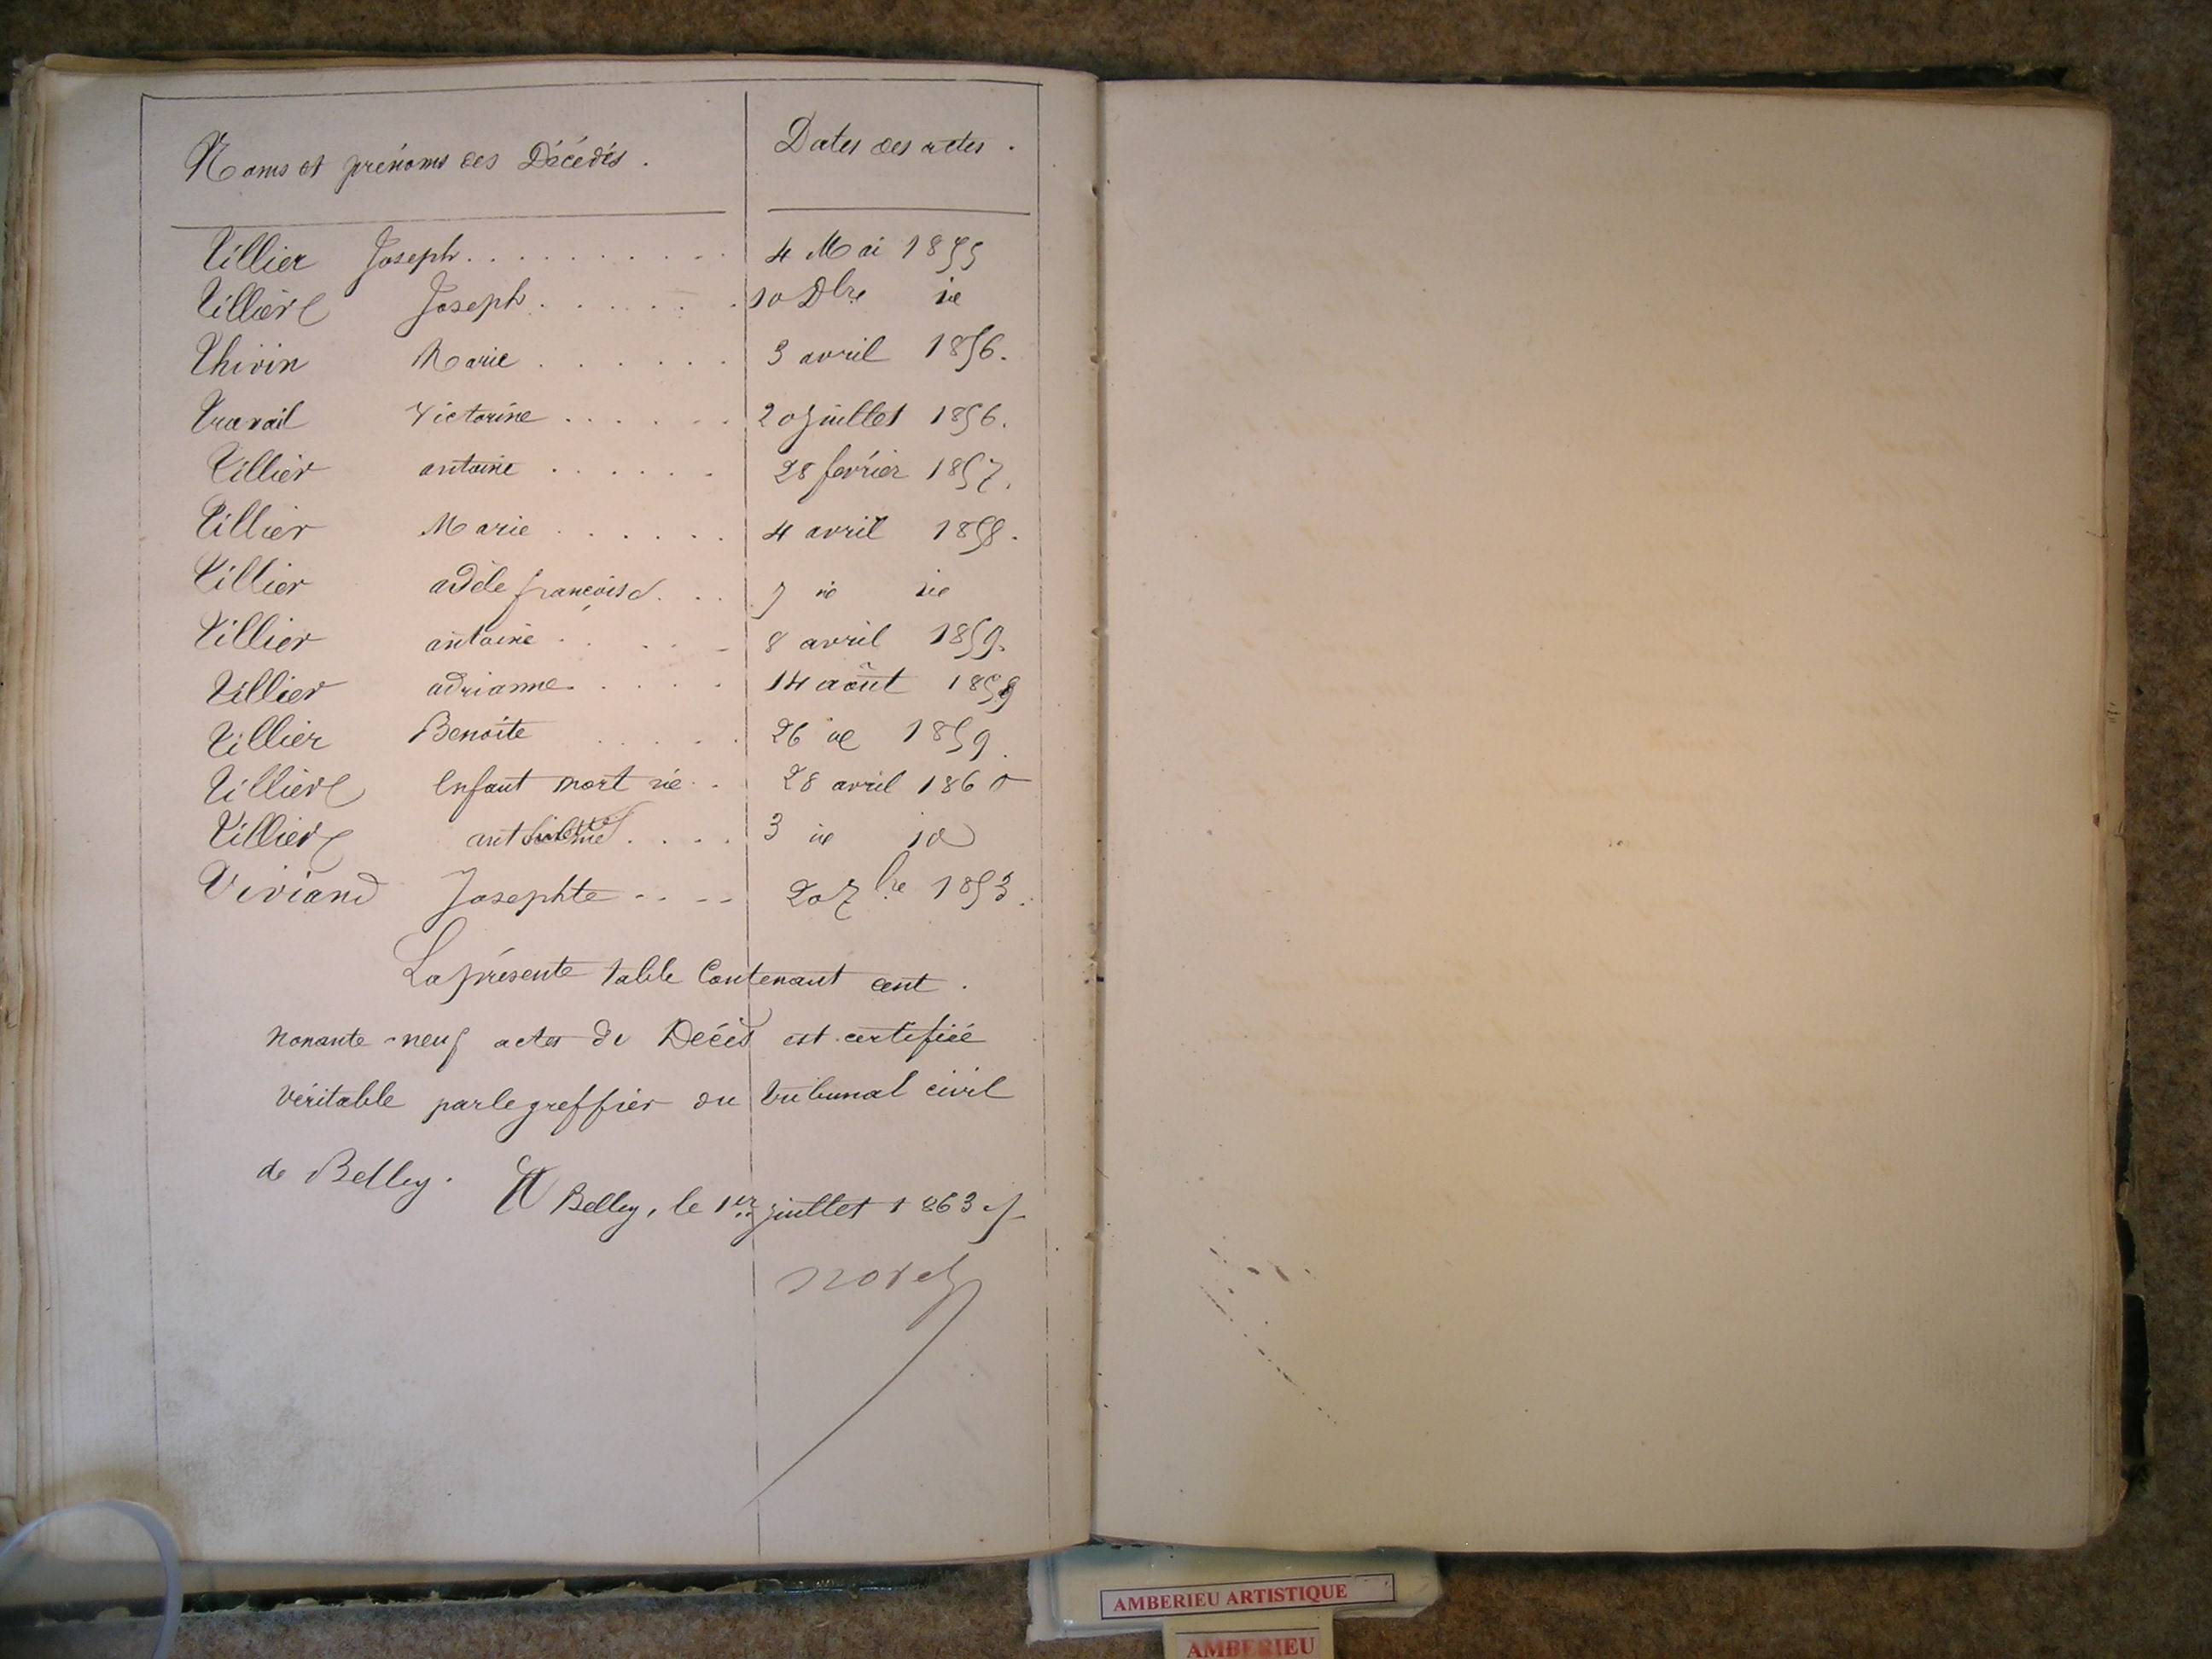 Noms et prénoms des Décédés. Dates des actes.
Tillier Joseph.......... 4 Mai 1855
Tillier Joseph....... 10 Dbre id
Thivin Marie...... 3 avril 1856.
Travail Victorine...... 20 juillet 1856.
Tillier antoine...... 28 fevrier 1857.
Tillier Marie...... 4 avril 1858.
Tillier adèle françoise... 7 id id
Tillier antoine.... 8 avril 1859.
Tillier adrianne..... 14 août 1859
Tillier Benoite..... 26 id 1859.
Tillier Enfant mort né.. 28 avril 1860
Tillier .... 3 id id
Viviand Josephte.... 20 7bre 1853.
La présente table Contenant cent.
nonante-neuf actes de Décès est certifiée
véritable par le greffier du tribunal civil
de Belley.
Belley, le 1er juillet 1863
AMBERIEU ARTISTIQUE
AMBERIEU